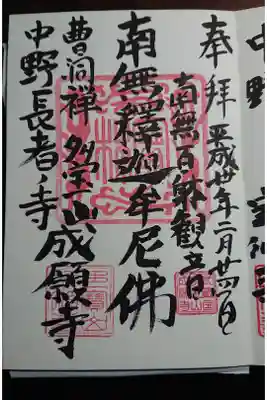 奉拝 平成廿年二月廿四日
南無百躰観音
南無釋迦牟尼佛
曹洞禅 多宝山成願寺
中野長者ノ寺